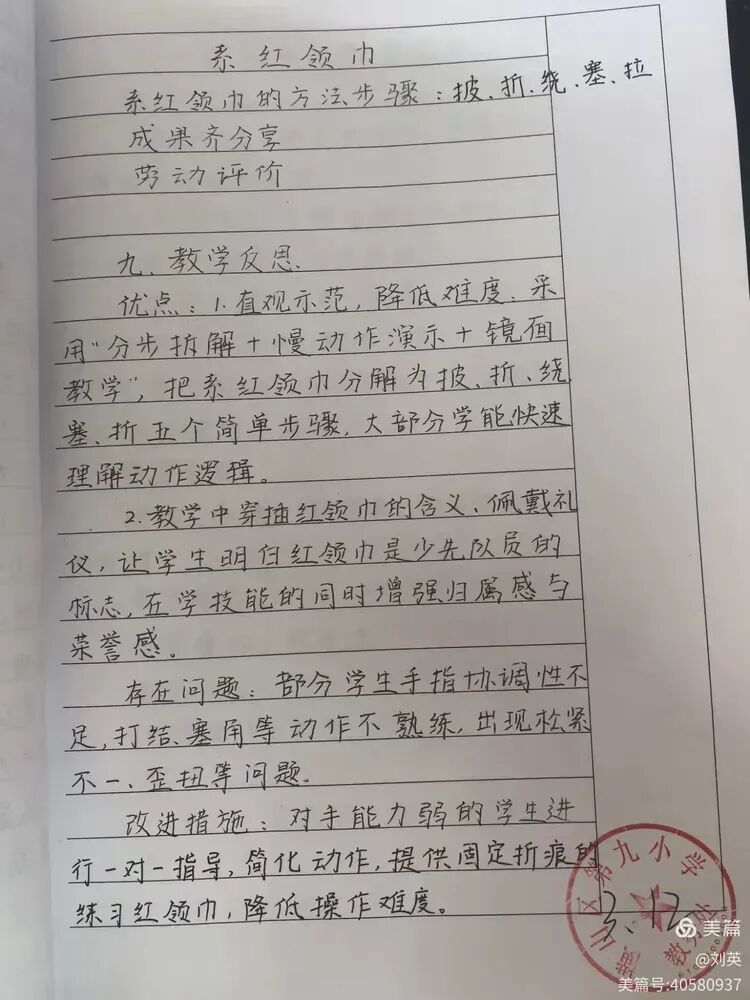 系红领巾
系红领巾的方法步骤：披、折、绕、塞、拉
成果齐分享
劳动评价
九、教学反思
优点：1.直观示范，降低难度：采
用“分步拆解+慢动作演示+镜面
教学”，把系红领巾分解为披、折、绕、
塞、折五个简单步骤，大部分学能快速
理解动作逻辑。
2.教学中穿插红领巾的含义、佩戴礼
仪，让学生明白红领巾是少先队员的
标志，在学技能的同时增强归属感与
荣誉感。
存在问题：部分学生手指协调性不
足，打结、塞角等动作不熟练，出现松紧
不一、歪扭等问题。
改进措施：对手能力弱的学生进
行一对一指导，简化动作，提供固定折痕的
练习红领巾，降低操作难度。
区第九小学
教
3.12
美篇
@刘英
美篇号:40580937